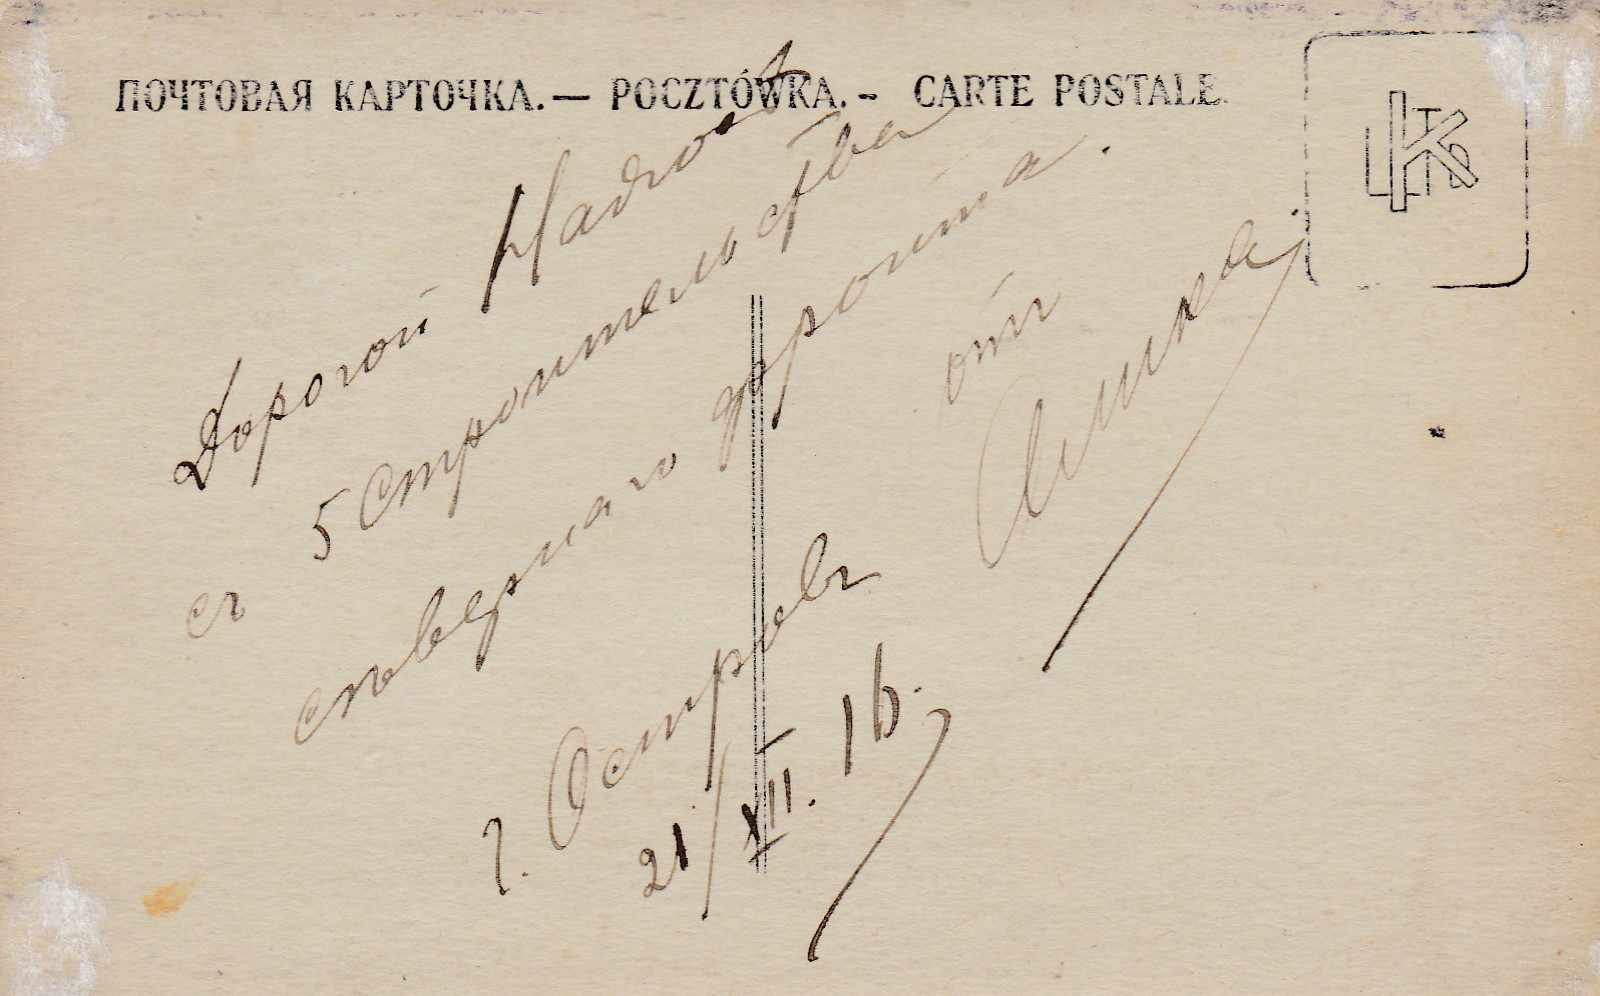 ПОЧТОВАЯ КАРТОЧКА. — POCZTÓWKA. - CARTE POSTALE.
Дорогой
съ 5 Строительства
сѣвернаго фронта.
отъ
г. Островъ
21/XII. 16.